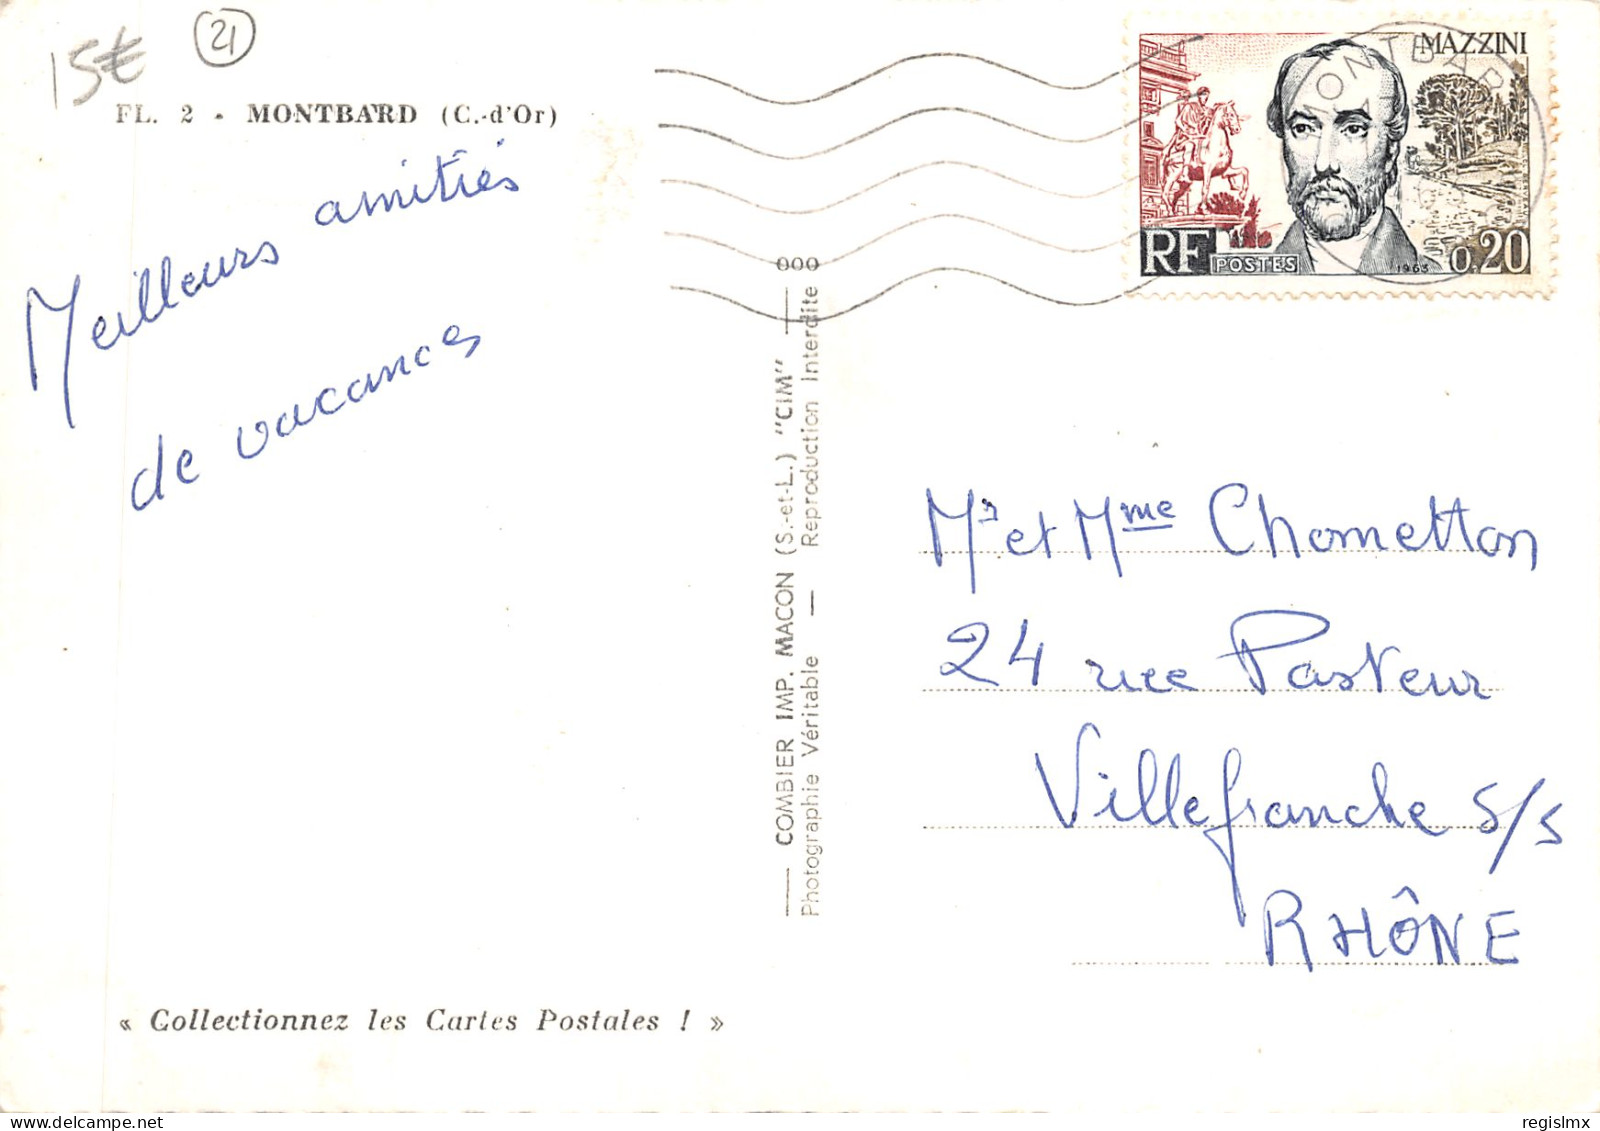 15€ 21
FL. 2 - MONTBARD (C.-d'Or)
Meilleurs amitiés
de vacances
MAZZINI
RF POSTES 1963 0.20
MONTBARD
000
COMBIER IMP. MACON (S.-et-L.) "CIM"
Photographie Véritable — Reproduction Interdite
Mr et Mme Chometton
24 rue Pasteur
Villefranche s/s
RHÔNE
« Collectionnez les Cartes Postales ! »
regislmx